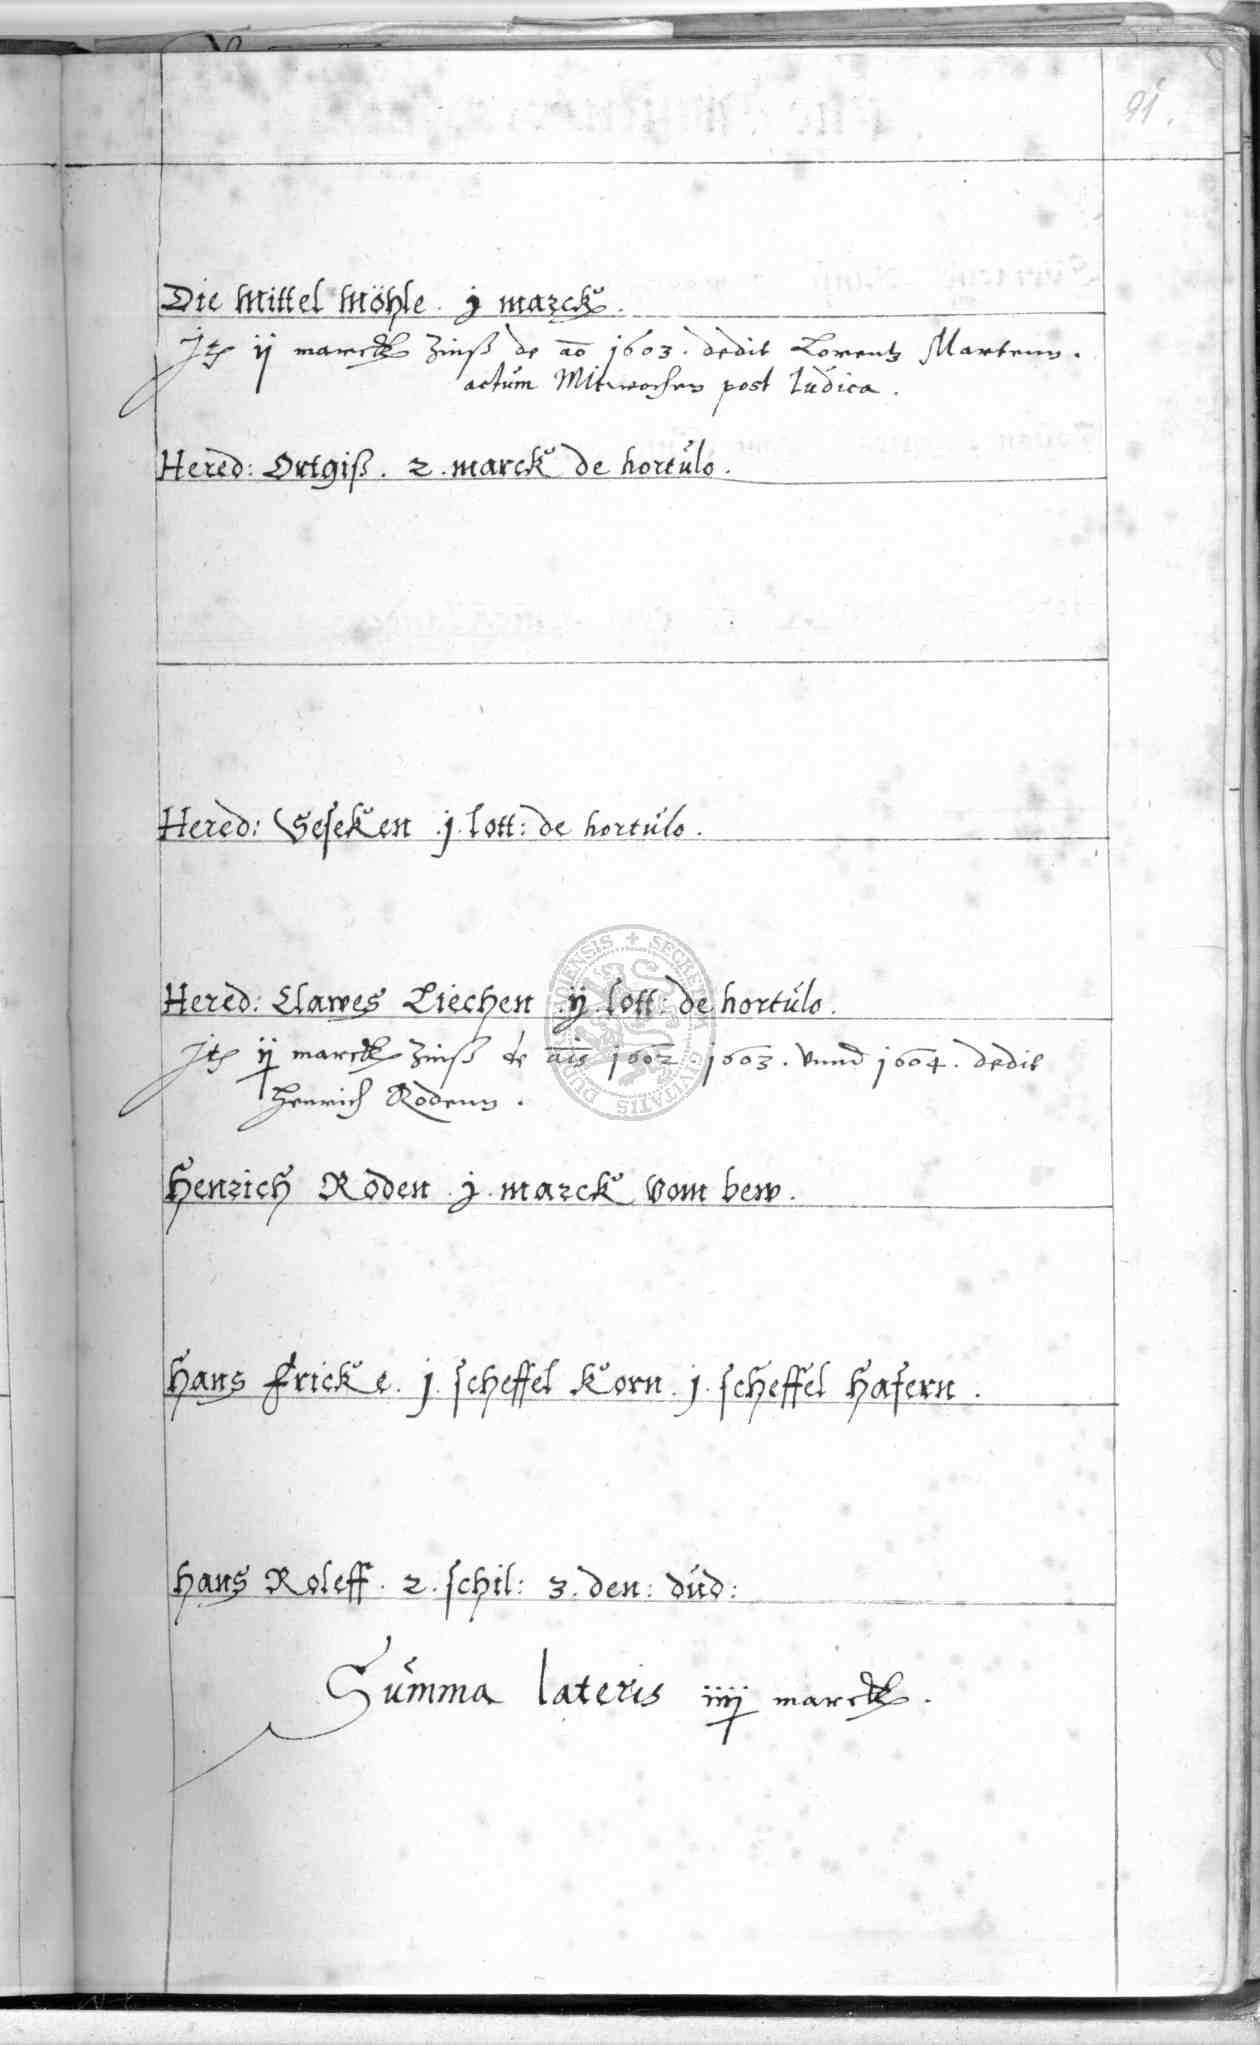 91.
Die Mittel Möhle . j marck .
Itē ij marck Zinß de aō 1603 . dedit Lorentz Martenn .
actum Mitwochen post Iudica .
Hered: Ortgiß . 2 . marck de hortulo .
Hered: Geseken . j . lott : de hortulo .
Hered: Clawes Liechen . ij . lott : de hortulo .
Itē ij marck Zinß de aīs 1602 1603 . vnnd 1604 . dedit
Henrich Rodenn .
Henrich Roden . j . marck vom bew .
Hans Fricke . j . scheffel Korn . j . scheffel Hafern .
Hans Roleff . 2 . schil : 3 . den : dud :
Summa lateris iiij marck .
SECRETVM CIVITATIS